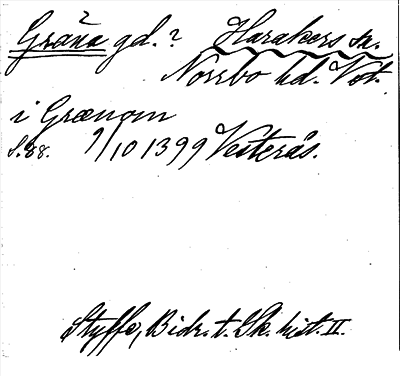 Gräna gd.? Harakers sn.
Norrbo hd. Vstm.
i Grænom
S. 88. 9/10 1399 Vesterås.
Styffe, Bidr. t. Sk. hist. II.